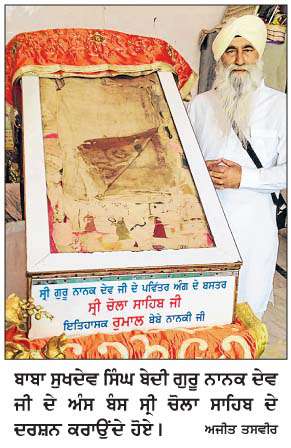 ਸ੍ਰੀ ਗੁਰੂ ਨਾਨਕ ਦੇਵ ਜੀ ਦੇ ਪਵਿੱਤਰ ਅੰਗ ਦੇ ਬਸਤਰ
ਸ੍ਰੀ ਚੋਲਾ ਸਾਹਿਬ ਜੀ
ਇਤਿਹਾਸਕ ਰੁਮਾਲ ਬੇਬੇ ਨਾਨਕੀ ਜੀ
ਬਾਬਾ ਸੁਖਦੇਵ ਸਿੰਘ ਬੇਦੀ ਗੁਰੂ ਨਾਨਕ ਦੇਵ
ਜੀ ਦੇ ਅੰਸ ਬੰਸ ਸ੍ਰੀ ਚੋਲਾ ਸਾਹਿਬ ਦੇ
ਦਰਸ਼ਨ ਕਰਾਉਂਦੇ ਹੋਏ। ਅਜੀਤ ਤਸਵੀਰ